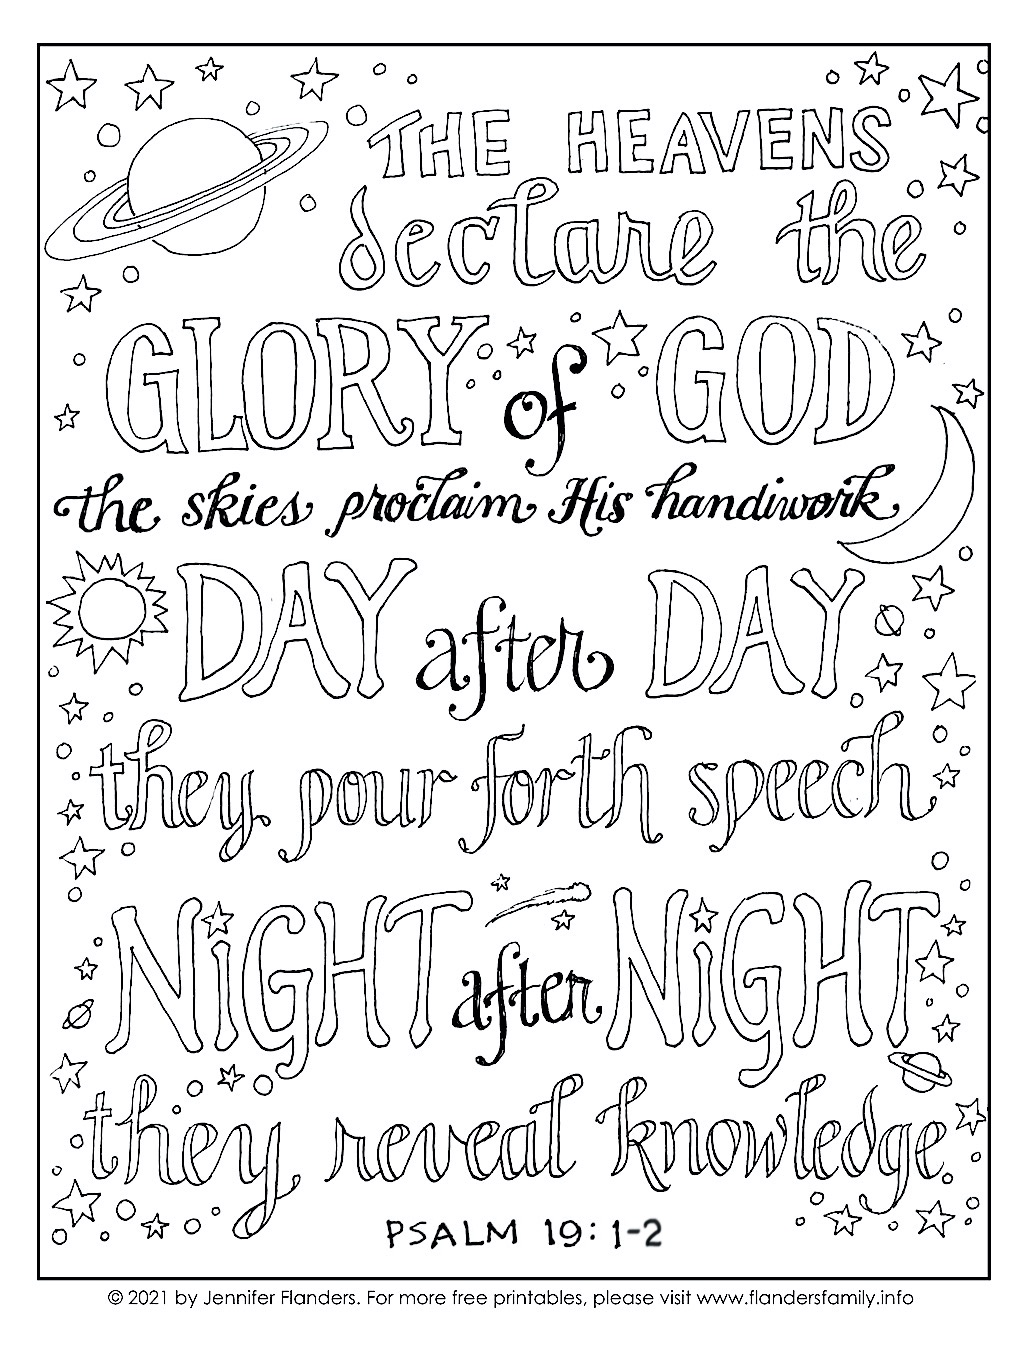 THE HEAVENS
declare the
GLORY of GOD
the skies proclaim His handiwork
DAY after DAY
they pour forth speech
NiGHT after NiGHT
they reveal knowledge.
PSALM 19:1-2
© 2021 by Jennifer Flanders. For more free printables, please visit www.flandersfamily.info